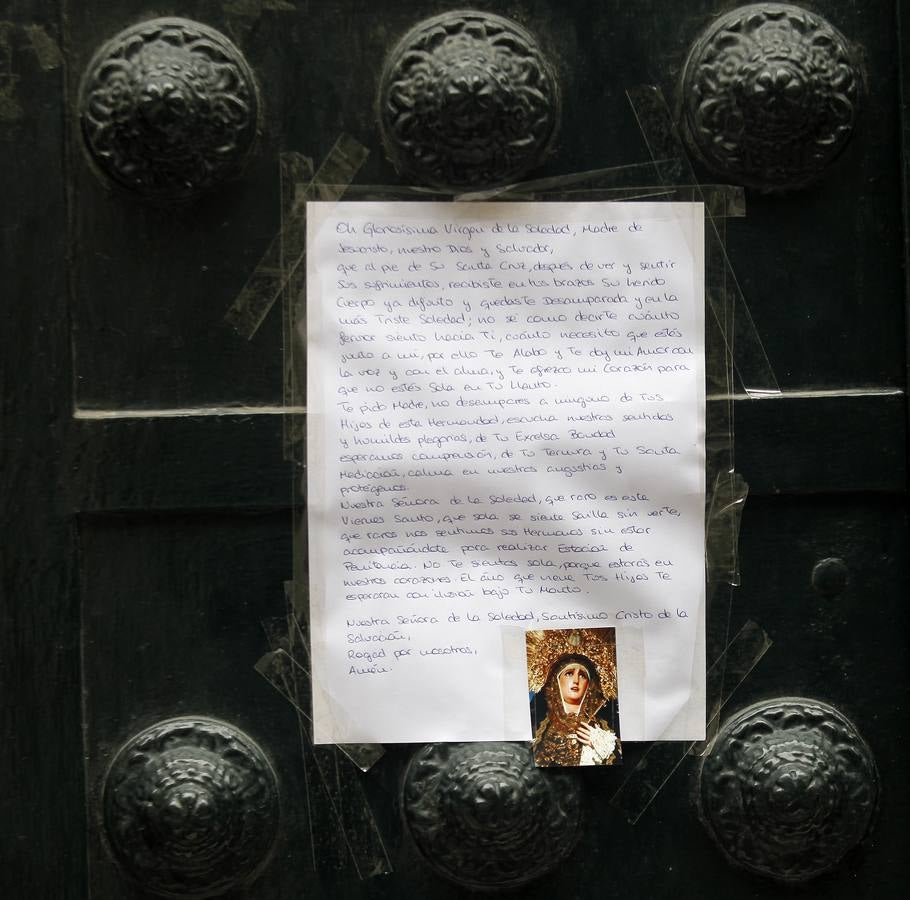 Oh Gloriosísima Virgen de la Soledad, Madre de
Jesucristo, nuestro Dios y Salvador,
que al pie de Su Santa Cruz, después de ver y sentir
Sus sufrimientos, recibiste en tus brazos Su herido
Cuerpo ya difunto y quedaste Desamparada y en la
más Triste Soledad; no sé como decirte cuánto
fervor siento hacia Ti, cuánto necesito que estés
junto a mi, por ello Te Alabo y Te doy mi Amor con
la voz y con el alma, y Te ofrezco mi Corazón para
que no estés Sola en Tu Llanto.
Te pido Madre, no desampares a ninguno de Tus
Hijos de esta Hermandad, escucha nuestras sentidas
y humildes plegarias, de Tu Excelsa Bondad
esperamos comprensión, de Tu Ternura y Tu Santa
Mediación, calma en nuestras angustias y
protégenos.
Nuestra Señora de la Soledad, que raro es este
Viernes Santo, que sola se siente Sevilla sin verte,
que raros nos sentimos sus Hermanos sin estar
acompañándote para realizar Estación de
Penitencia. No Te sientas sola, porque estarás en
nuestros corazones. El año que viene Tus Hijos Te
esperaran con ilusión bajo Tu Manto.
Nuestra Señora de la Soledad, Santísimo Cristo de la
Salvación,
Rogad por nosotros,
Amén.